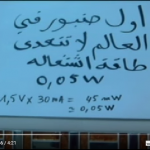 اول صنبور في
العالم لا تتعدى
طاقة اشتغاله
0,05W
1,5V x 30mA = 45 mW
= 0,05W
4:21